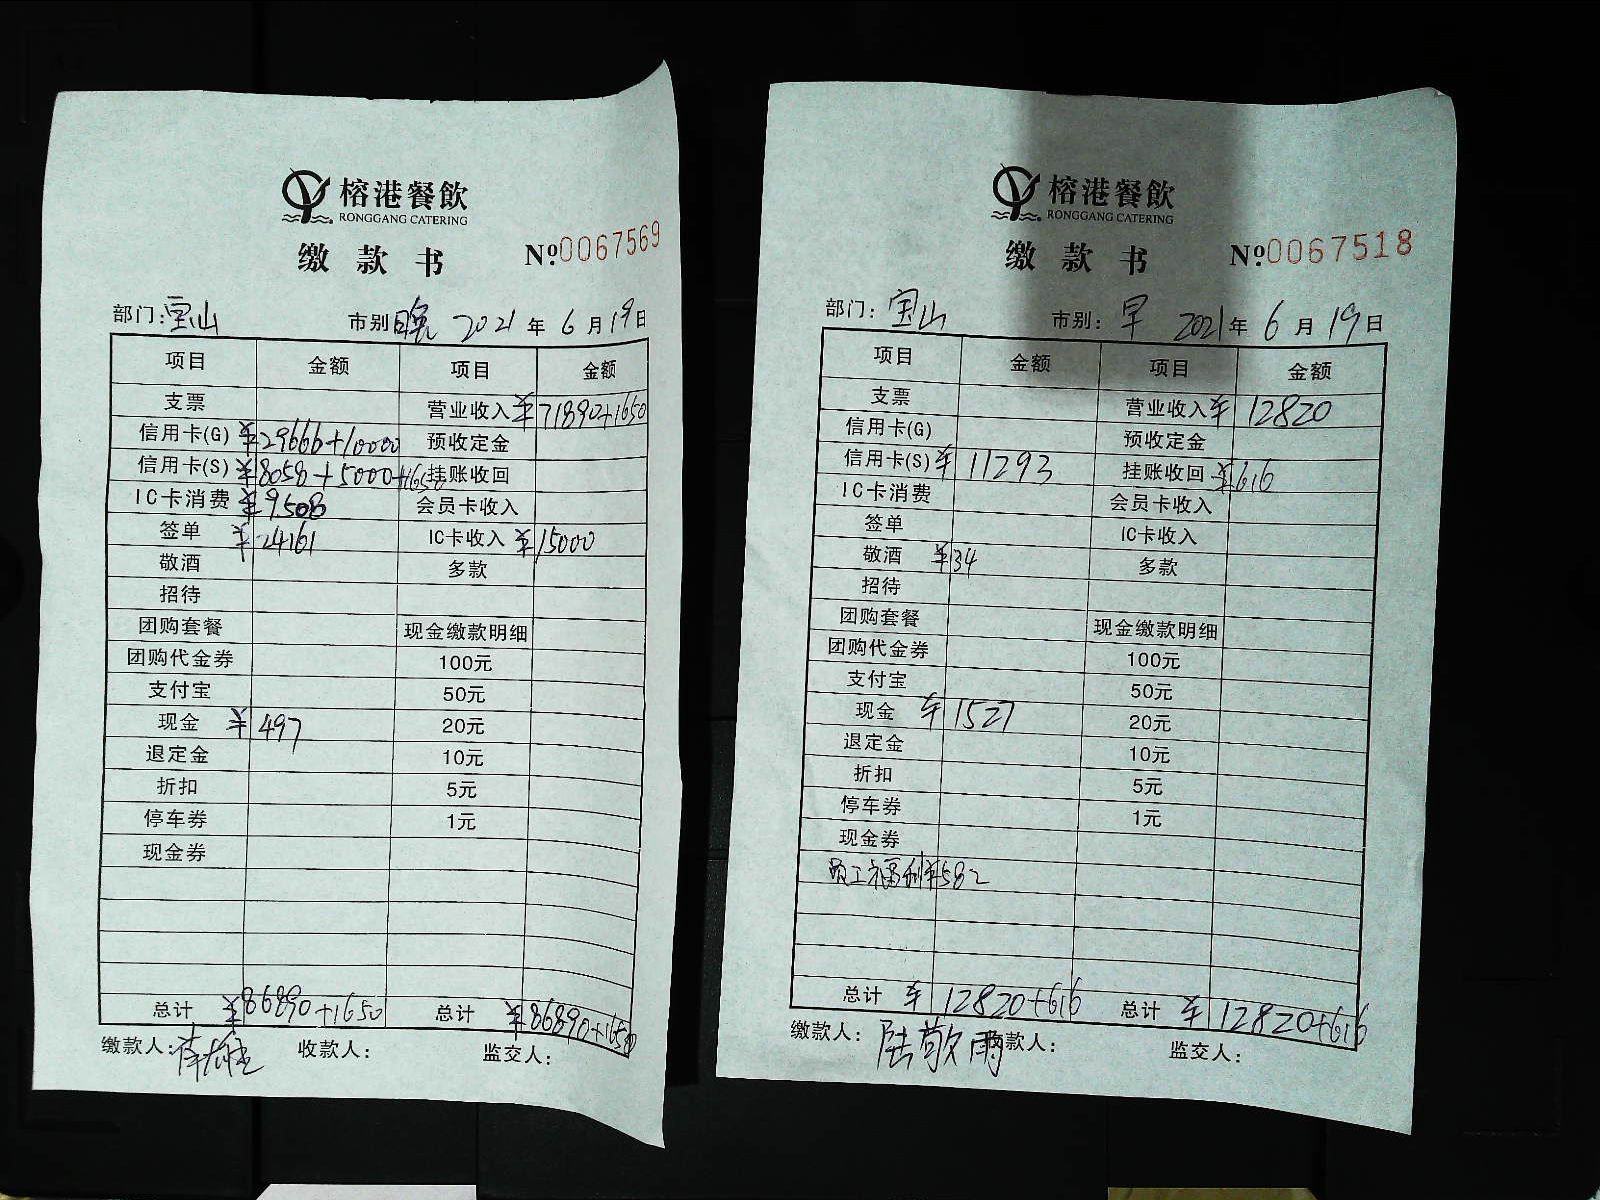 榕港餐飲
RONGGANG CATERING
缴款书 Nº0067569
部门:宝山 市别 晚 2021年6月19日
项目 金额 项目 金额
支票 营业收入 ¥71890+1650
信用卡(G) ¥29666+10000 预收定金
信用卡(S) ¥8058+5000+1650 挂账收回
IC卡消费 ¥9508 会员卡收入
签单 ¥24161 IC卡收入 ¥15000
敬酒 多款
招待
团购套餐 现金缴款明细
团购代金券 100元
支付宝 50元
现金 ¥497 20元
退定金 10元
折扣 5元
停车券 1元
现金券
总计 ¥86890+1650 总计 ¥86890+1650
缴款人: 收款人: 监交人:
榕港餐飲
RONGGANG CATERING
缴款书 Nº0067518
部门:宝山 市别:早 2021年6月19日
项目 金额 项目 金额
支票 营业收入 ¥12820
信用卡(G) 预收定金
信用卡(S) ¥11293 挂账收回 ¥616
IC卡消费 会员卡收入
签单 IC卡收入
敬酒 ¥34 多款
招待
团购套餐 现金缴款明细
团购代金券 100元
支付宝 50元
现金 ¥1527 20元
退定金 10元
折扣 5元
停车券 1元
现金券
员工福利 ¥582
总计 ¥12820+616 总计 ¥12820+616
缴款人:陆敬雨 收款人: 监交人: